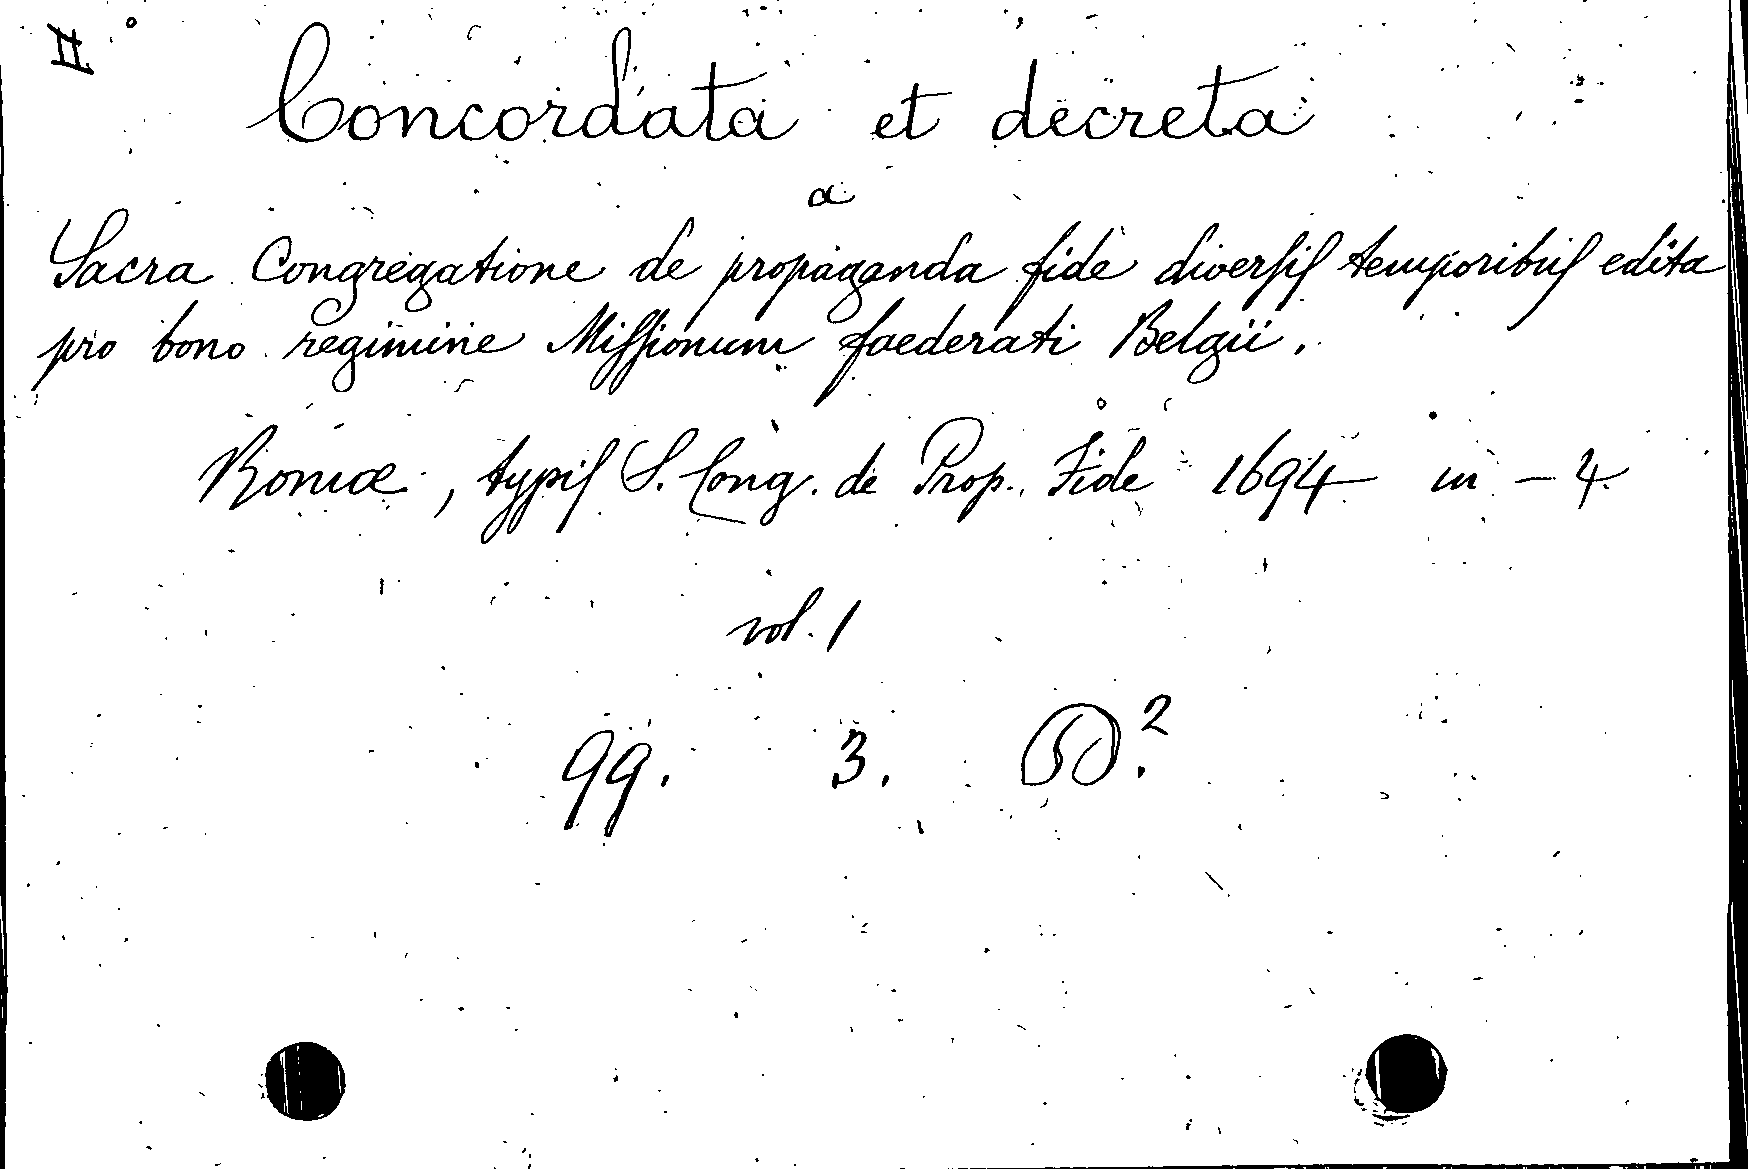 II
Concordata et decreta
a
Sacra Congregatione de propaganda fide diversis temporibus edita
pro bono regimine Missionum faederati Belgii.
Romæ, typis S. Cong. de Prop. Fide 1694 in-4
vol. 1
99. 3. D.²